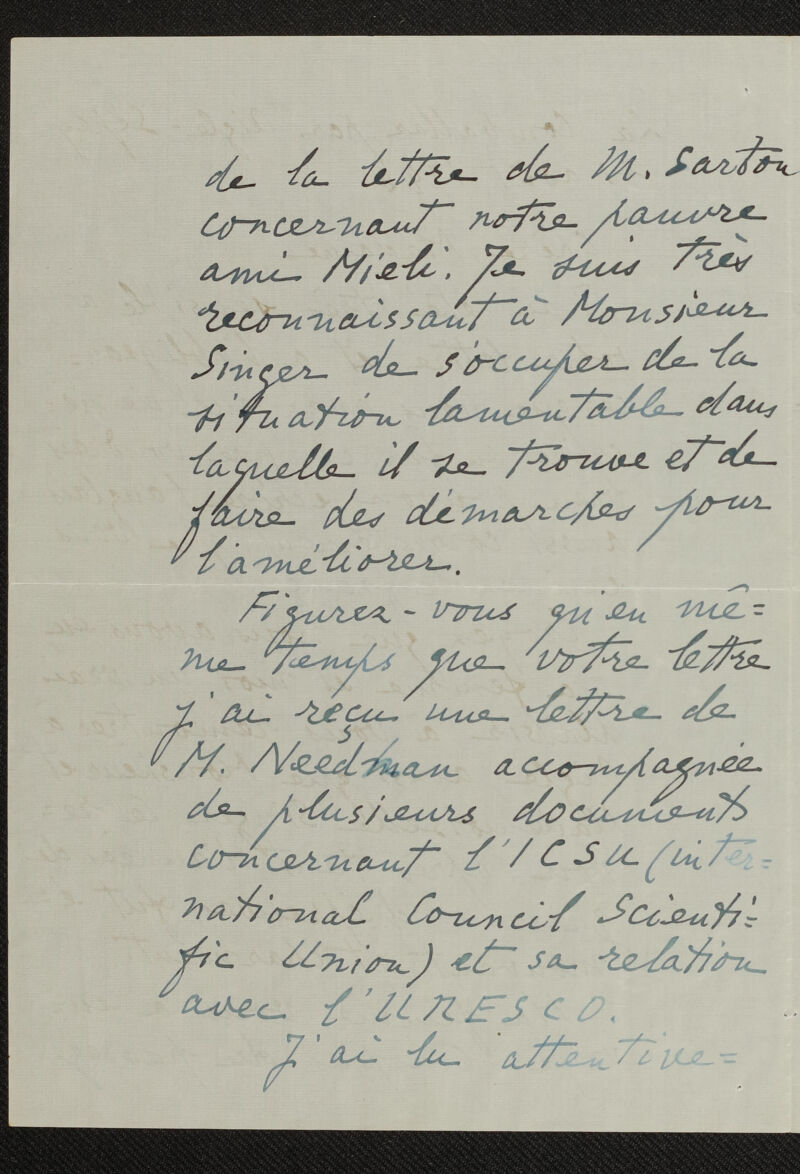 de la lettre de M. Sarton
concernant notre pauvre
ami Mieli. Je suis très
reconnaissant à Monsieur
Singer de s'occuper de la
situation lamentable dans
laquelle il se trouve et de
faire des démarches pour
l'améliorer.
Figurez-vous qu'en mê=
me temps que votre lettre
j'ai reçu une lettre de
M. Needman accompagnée
de plusieurs documents
concernant l'ICSU (inter=
national Council Scienti=
fic Union) et sa relation
avec l'UNESCO.
J'ai lu attentive=